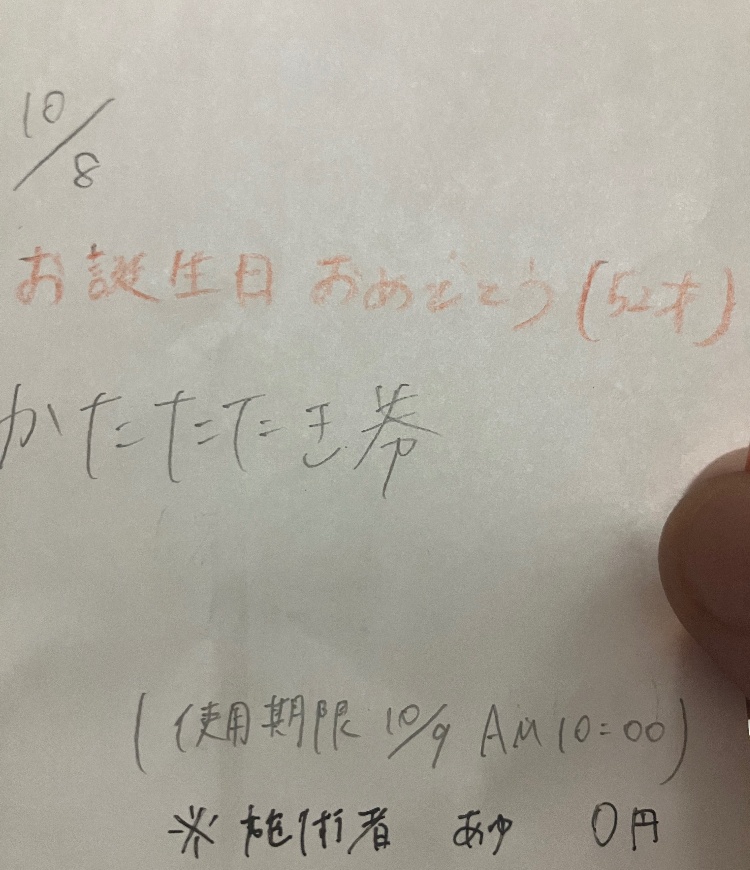 10/8
お誕生日 おめでとう (52才)
かたたたき券
(使用期限 10/9 AM 10:00)
※ 施術者 あゆ 0円